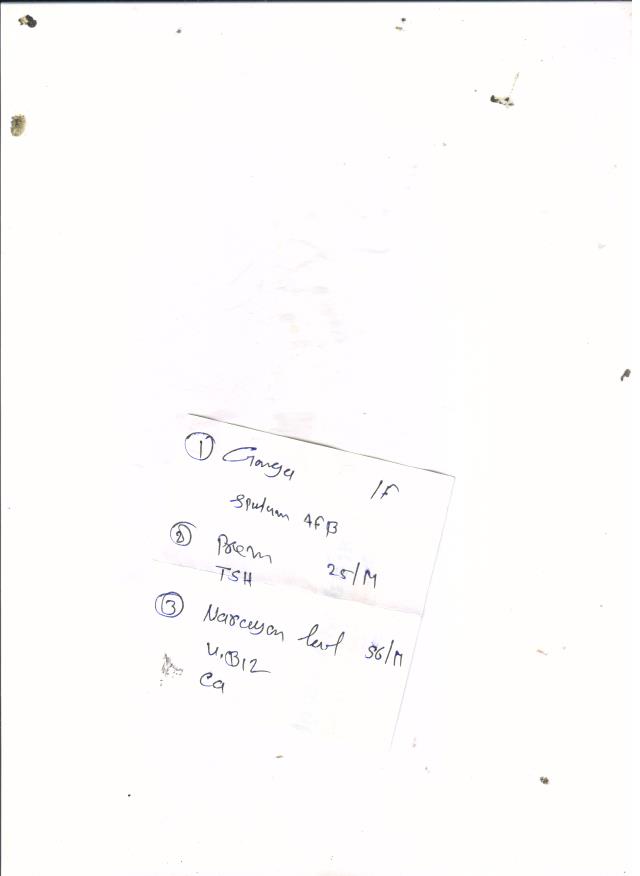 ① Ganga /F
Sputum AFB
② Prem 25/M
TSH
③ Narayan lal 56/M
V.B12
Ca